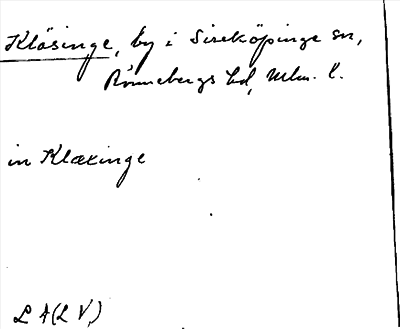 Klösinge, by i Sireköpinge sn,
Rönnebergs hd, Mlm. l.
in Klæxinge
L A (L V,)